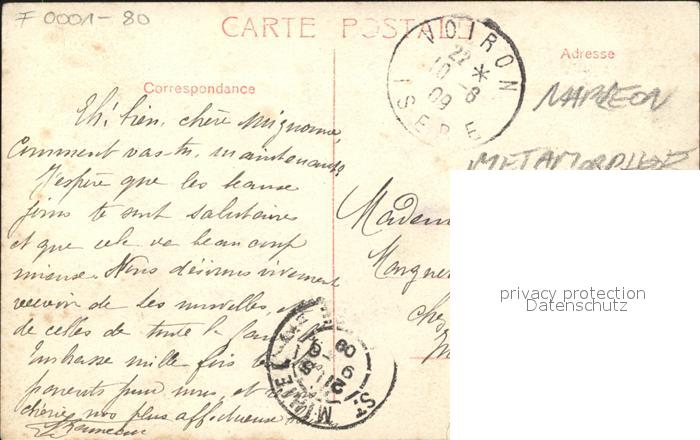 F 0001-80
CARTE POSTALE
Adresse
VOIRON
22 *
10 -8
09
ISERE
NAPOLEON
METAMORPHOSE
Correspondance
Eh! bien, chère Mignonne,
Comment vas-tu, maintenant?
J'espère que les beaux
jours te sont salutaires
et que cela va beaucoup
mieux. Nous désirons vivement
recevoir de tes nouvelles, et
de celles de toute la
Embrasse mille fois
parents pour nous, et
chérie nos plus affectueuse
Madem
Marguer
chez
ST MICHEL
09
privacy protection
Datenschutz